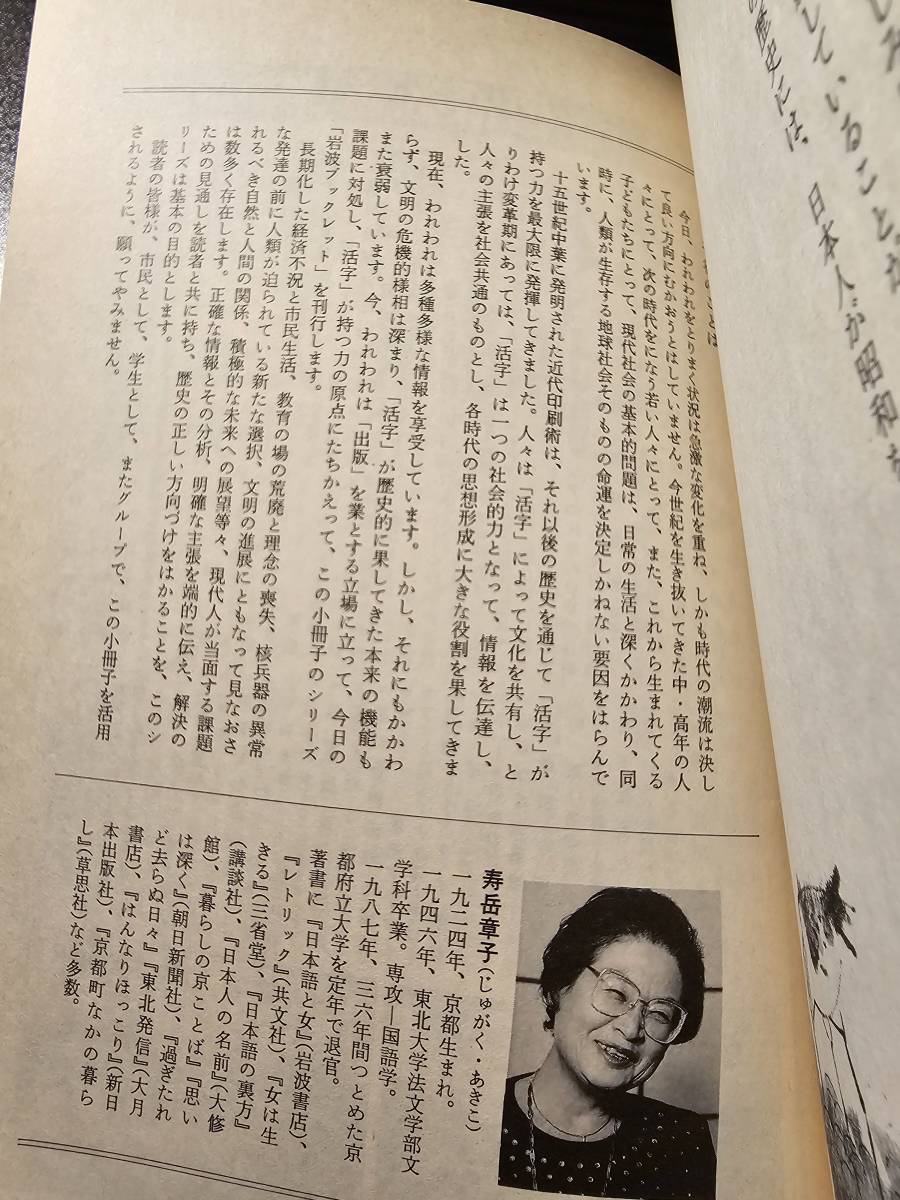 していることだ
の歴史には、日本人が昭和を
今日、われわれをとりまく状況は急激な変化を重ね、しかも時代の潮流は決し
て良い方向にむかおうとはしていません。今世紀を生き抜いてきた中・高年の人
々にとって、次の時代をになう若い人々にとって、また、これから生まれてくる
子どもたちにとって、現代社会の基本的問題は、日常の生活と深くかかわり、同
時に、人類が生存する地球社会そのものの命運を決定しかねない要因をはらんで
います。
十五世紀中葉に発明された近代印刷術は、それ以後の歴史を通じて「活字」が
持つ力を最大限に発揮してきました。人々は「活字」によって文化を共有し、と
りわけ変革期にあっては、「活字」は一つの社会的力となって、情報を伝達し、
人々の主張を社会共通のものとし、各時代の思想形成に大きな役割を果してきま
した。
現在、われわれは多種多様な情報を享受しています。しかし、それにもかかわ
らず、文明の危機的様相は深まり、「活字」が歴史的に果してきた本来の機能も
また衰弱しています。今、われわれは「出版」を業とする立場に立って、今日の
課題に対処し、「活字」が持つ力の原点にたちかえって、この小冊子のシリーズ
「岩波ブックレット」を刊行します。
長期化した経済不況と市民生活、教育の場の荒廃と理念の喪失、核兵器の異常
な発達の前に人類が迫られている新たな選択、文明の進展にともなって見なおさ
れるべき自然と人間の関係、積極的な未来への展望等々、現代人が当面する課題
は数多く存在します。正確な情報とその分析、明確な主張を端的に伝え、解決の
ための見通しを読者と共に持ち、歴史の正しい方向づけをはかることを、このシ
リーズは基本の目的とします。
読者の皆様が、市民として、学生として、またグループで、この小冊子を活用
されるように、願ってやみません。
寿岳章子(じゅがく・あきこ)
一九二四年、京都生まれ。
一九四六年、東北大学法文学部文
学科卒業。専攻―国語学。
一九八七年、三六年間つとめた京
都府立大学を定年で退官。
著書に『日本語と女』(岩波書店)、
『レトリック』(共文社)、『女は生
きる』(三省堂)、『日本語の裏方』
(講談社)、『日本人の名前』(大修
館)、『暮らしの京ことば』『思い
は深く』(朝日新聞社)、『過ぎたれ
ど去らぬ日々』『東北発信』(大月
書店)、『はんなりほっこり』(新日
本出版社)、『京都町なかの暮ら
し』(草思社)など多数。